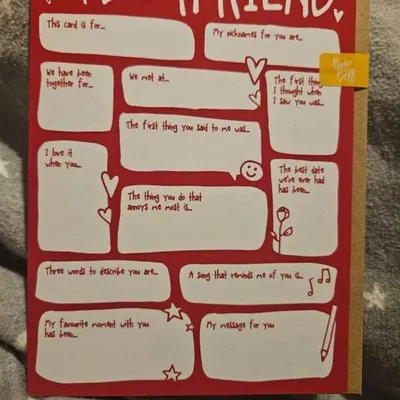 FRIEND
This card is for...
My nicknames for you are...
We have been
together for...
We met at...
The first thing
I thought when
I saw you was...
The first thing you said to me was...
I love it
when you...
The best date
we've ever had
has been...
The thing you do that
annoys me most is...
Three words to describe you are...
A song that reminds me of you is...
My favourite moment with you
has been...
My message for you